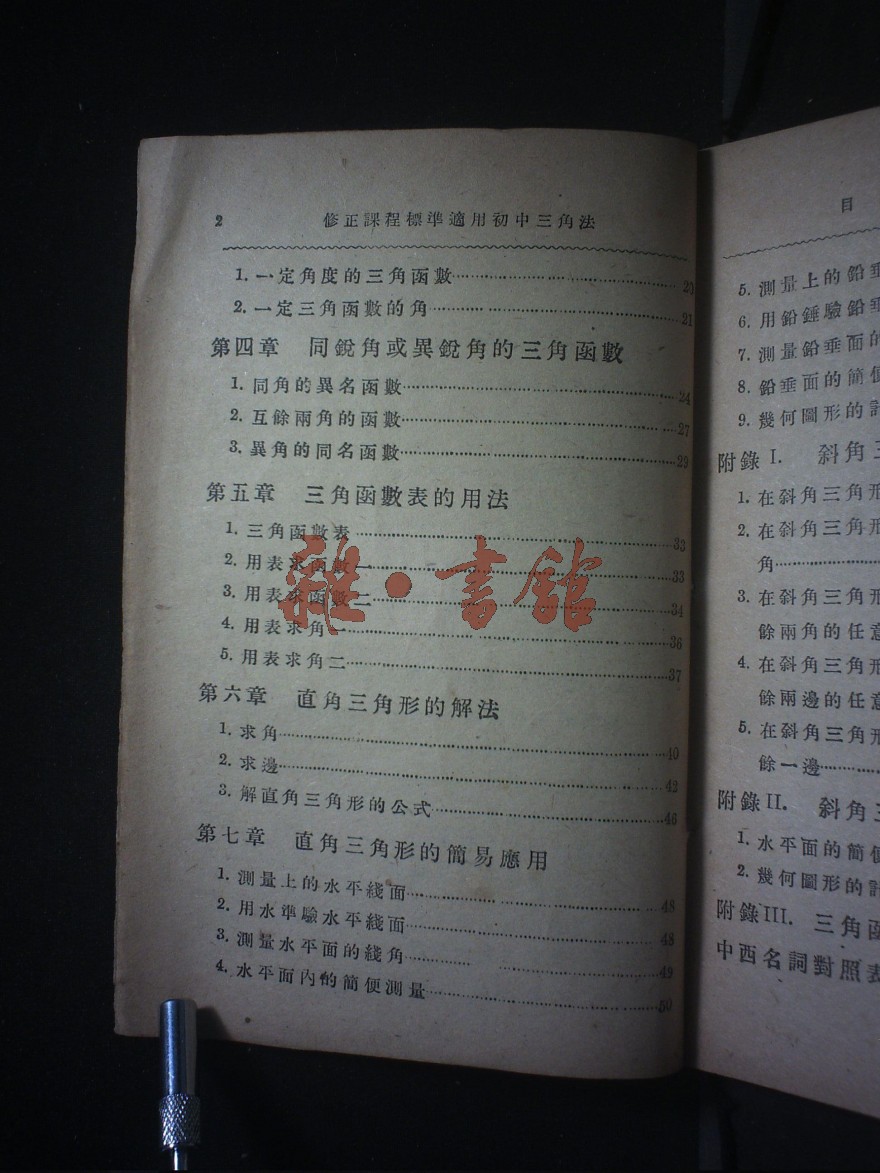 2 修正課程標準適用初中三角法
1. 一定角度的三角函數 20
2. 一定三角函數的角 21
第四章 同銳角或異銳角的三角函數
1. 同角的異名函數 24
2. 互餘兩角的函數 27
3. 異角的同名函數 29
第五章 三角函數表的用法
1. 三角函數表 33
2. 用表求函數一 33
3. 用表求函數二 34
4. 用表求角一 36
5. 用表求角二 37
第六章 直角三角形的解法
1. 求角 40
2. 求邊 42
3. 解直角三角形的公式 46
第七章 直角三角形的簡易應用
1. 測量上的水平綫面 48
2. 用水準驗水平綫面 48
3. 測量水平面的綫角 49
4. 水平面內的簡便測量 50
雜·書館
目
5. 測量上的鉛垂
6. 用鉛錘驗鉛垂
7. 測量鉛垂面的
8. 鉛垂面的簡便
9. 幾何圖形的計
附錄 I. 斜角三
1. 在斜角三角形
2. 在斜角三角形
角
3. 在斜角三角形
餘兩角的任意
4. 在斜角三角形
餘兩邊的任意
5. 在斜角三角形
餘一邊
附錄 II. 斜角三
1. 水平面的簡便
2. 幾何圖形的計
附錄 III. 三角函
中西名詞對照表